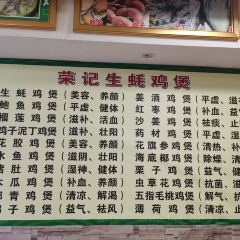 荣记生蚝鸡煲
生蚝鸡煲（美容、养颜）
鲍鱼鸡煲（平虚、健体）
榴莲鸡煲（滋补、活血）
沙子泥丁鸡煲（滋补、壮阳）
花胶鸡煲（美容、养颜）
水鱼鸡煲（滋阴、壮阳）
猪肚鸡煲（湿神、健体）
木瓜鸡煲（补血、养颜）
青鸡煲（清凉、解渴）
子鸡煲（益气、祛风）
姜酒鸡煲（平虚、滋
红枣鸡煲（补血、益
沙姜鸡煲（祛痰、
药材鸡煲（平虚、
花旗参鸡煲（清热、
海底椰鸡煲（除燥、清
栗子鸡煲（益气、健
虫草花鸡煲（抗菌、滋
五指毛桃鸡煲（清凉、解
薄荷鸡煲（清凉、止